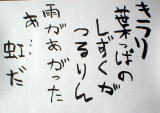 きラり
葉っぱの
しずくが
つるりん
雨があがった
あ
虹だ